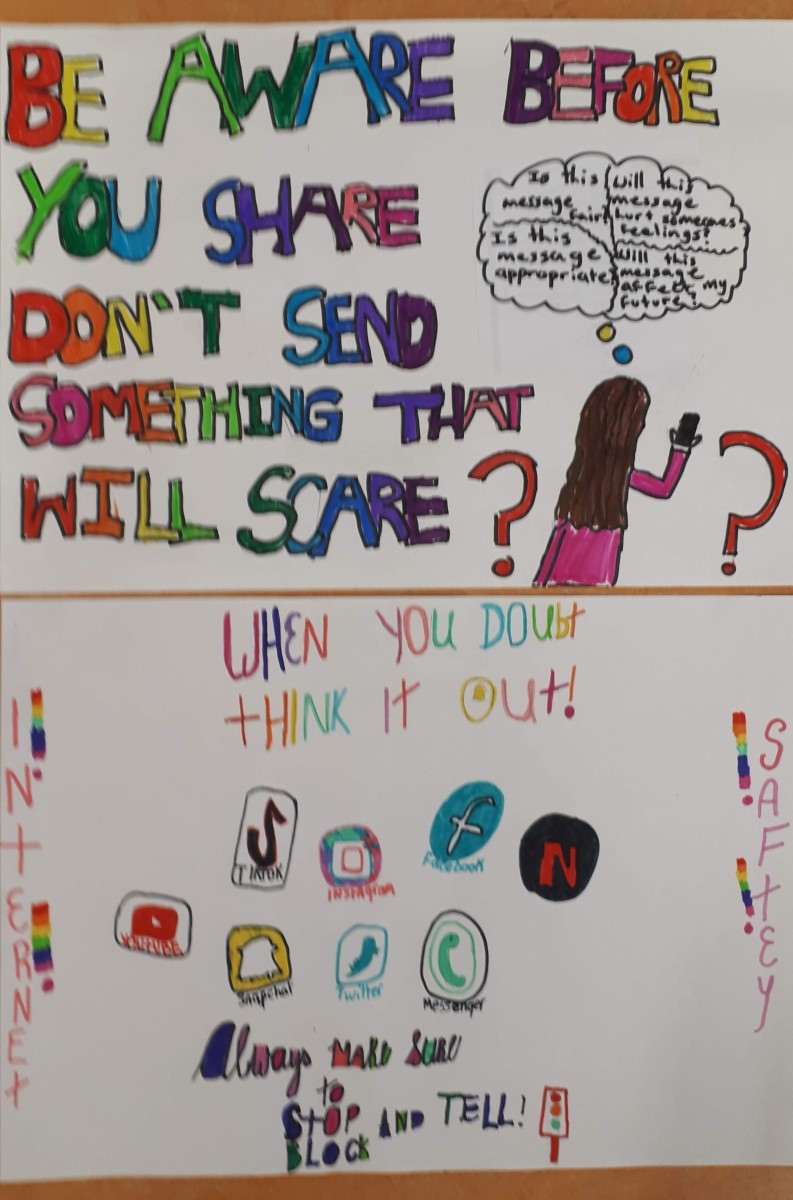 BE AWARE BEFORE
YOU SHARE
DON'T SEND
SOMETHING THAT
WILL SCARE
Is this
message
fair?
Will this
message
hurt someones
fealings?
Is this
message
appropriate?
Will this
message
affect my
future?
? ?
WHEN YOU DOUbt
tHINK It OUt!
INtERNEt
SAFtEY
TIKTOK
INStAgram
Facebook
N
YOUTUBE
Snapchat
Twitter
Messenger
Always MAKE SURE
to
StOP
BLOCK
AND TELL!